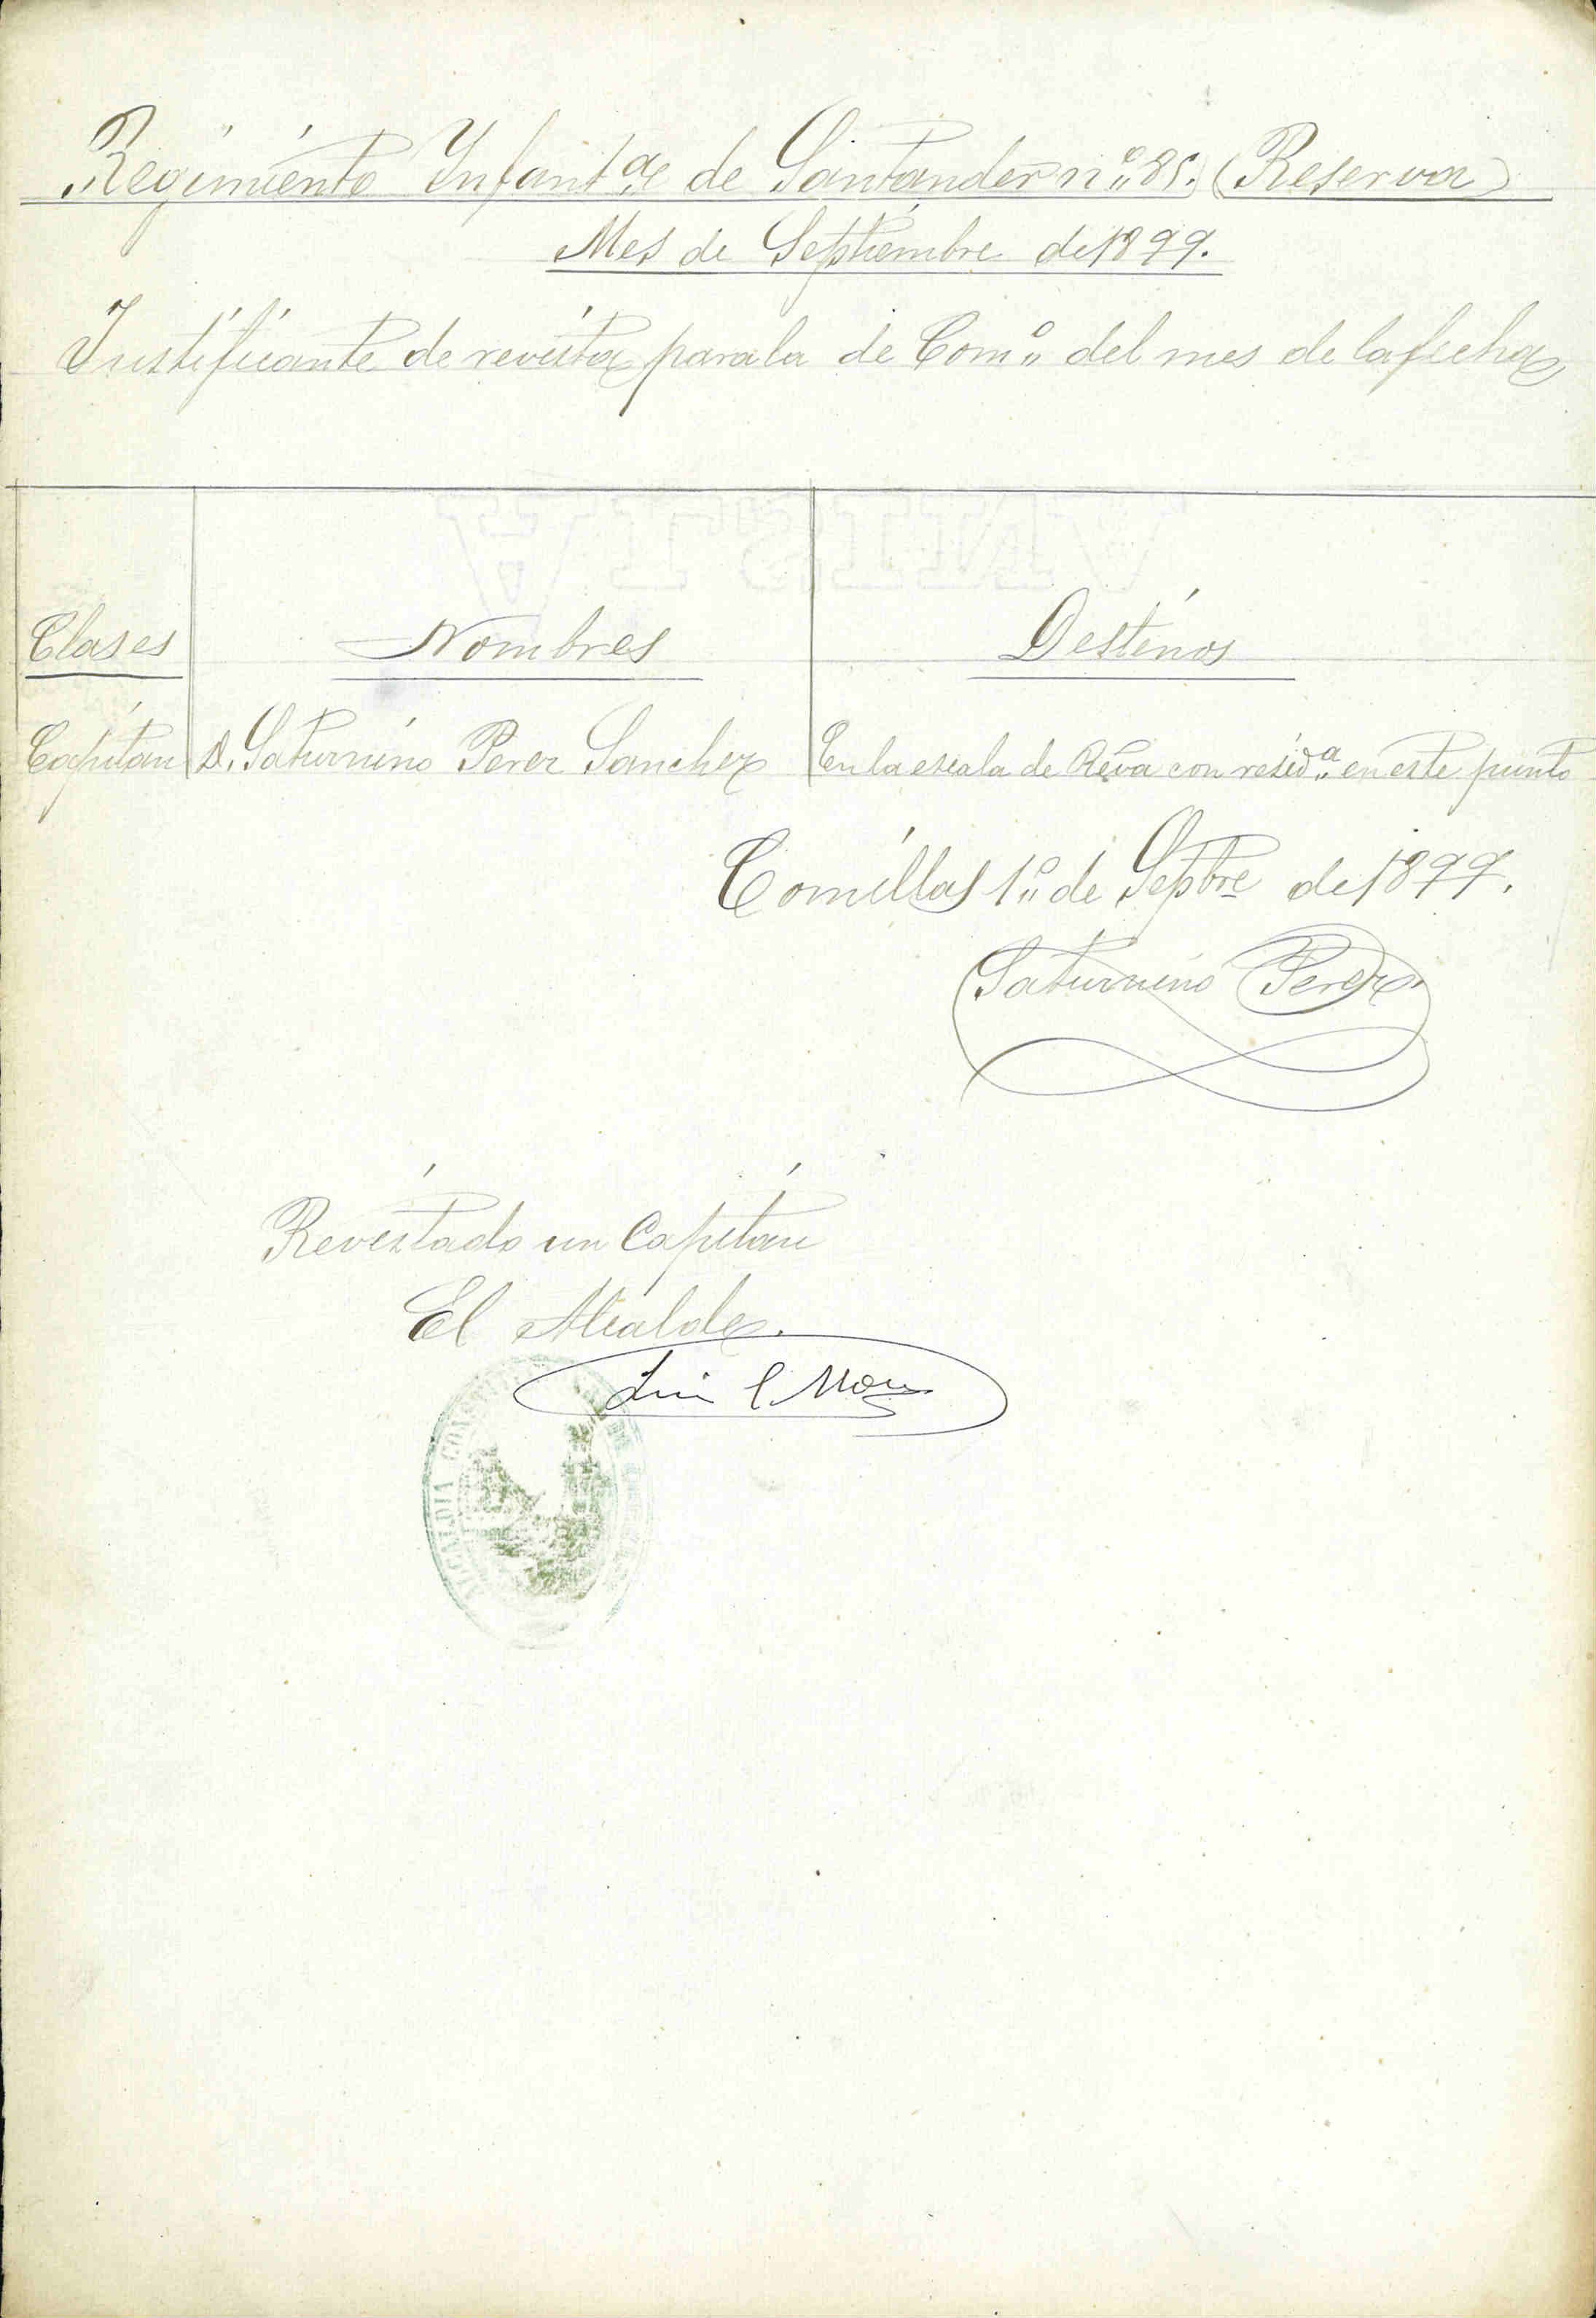 Regimiento Infantª de Santander nº 85. (Reserva)
Mes de Septiembre de 1899.
Justificante de revista para la de Comº del mes de la fecha
Clases Nombres Destinos
Capitan D. Saturnino Perez Sanchez En la escala de Rêva con residª en este punto
Comillas 1º de Septbre de 1899.
Saturnino Perez
Revistado un Capitan
El Alcalde.
ALCALDIA